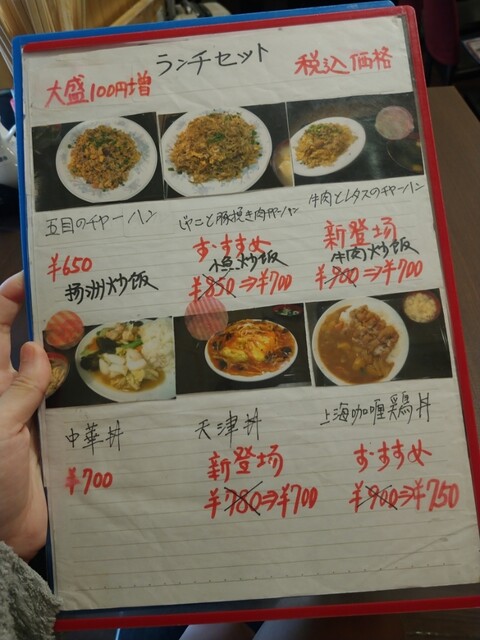 ランチセット
大盛100円増
税込価格
五目のチャーハン
¥650
揚州炒飯
じゃこと豚挽き肉チャーハン
おすすめ
魚炒飯
¥850⇒¥700
牛肉とレタスのチャーハン
新登場
牛肉炒飯
¥900⇒¥700
中華丼
¥700
天津丼
新登场
¥780⇒¥700
上海咖喱鶏丼
おすすめ
¥900⇒¥750